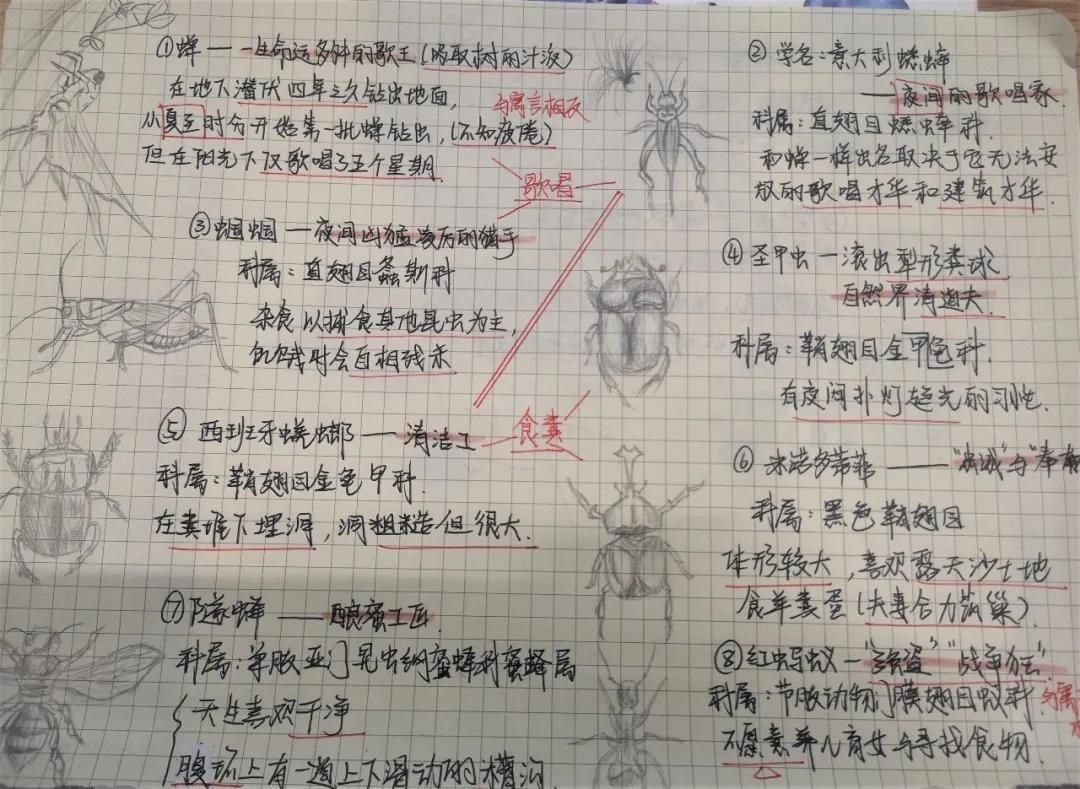 ①蝉——一生命运多舛的歌王(吸取树的汁液)
在地下潜伏四年之久钻出地面,
与寓言相反
从夏至时分开始第一批蝉钻出,(不知疲倦)
但在阳光下仅歌唱了五个星期.
歌唱
②学名:意大利蟋蟀
——夜间的歌唱家.
科属:直翅目蟋蟀科.
和蝉一样出名取决于它无法安
放的歌唱才华和建筑才华.
③蝈蝈—夜间凶猛凌厉的猎手
科属:直翅目螽斯科
杂食以捕食其他昆虫为主,
饥饿时会自相残杀
④圣甲虫—滚出梨形粪球,
自然界清道夫
科属:鞘翅目金甲龟科.
有夜间扑灯趋光的习性.
⑤西班牙蜣螂——清洁工
食粪
科属:鞘翅目金龟甲科.
在粪堆下埋洞,洞粗糙但很大.
⑥米诺多蒂菲——"忠诚"与"奉
科属:黑色鞘翅目
体形较大,喜欢露天沙土地
食羊粪蛋(夫妻合力筑巢)
⑦隧蜂——酿蜜工匠.
科属:单肢亚门昆虫纲蜜蜂科蜜蜂属
天生喜欢干净
腹环上有一道上下滑动的槽沟
⑧红蚂蚁—"强盗""战争
科属:节肢动物门膜翅目蚁科.
不愿意养儿育女与寻找食物.